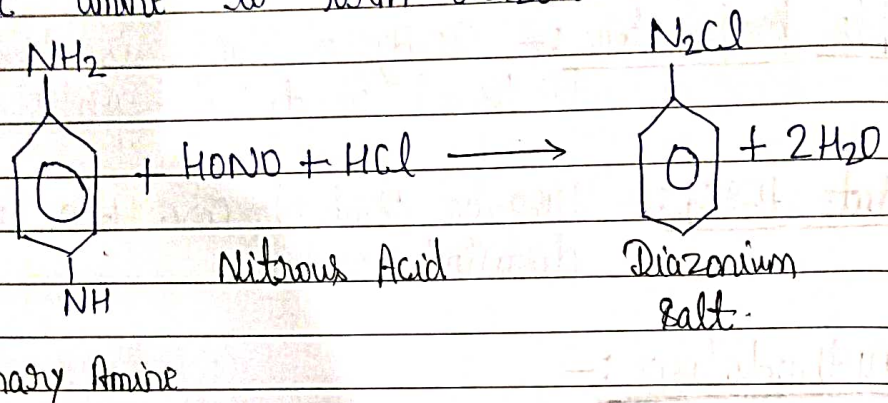 amine
NH₂
N₂Cl
+ HONO + HCl ⟶ + 2H₂O
NH
Nitrous Acid
Diazonium
Salt.
Amine